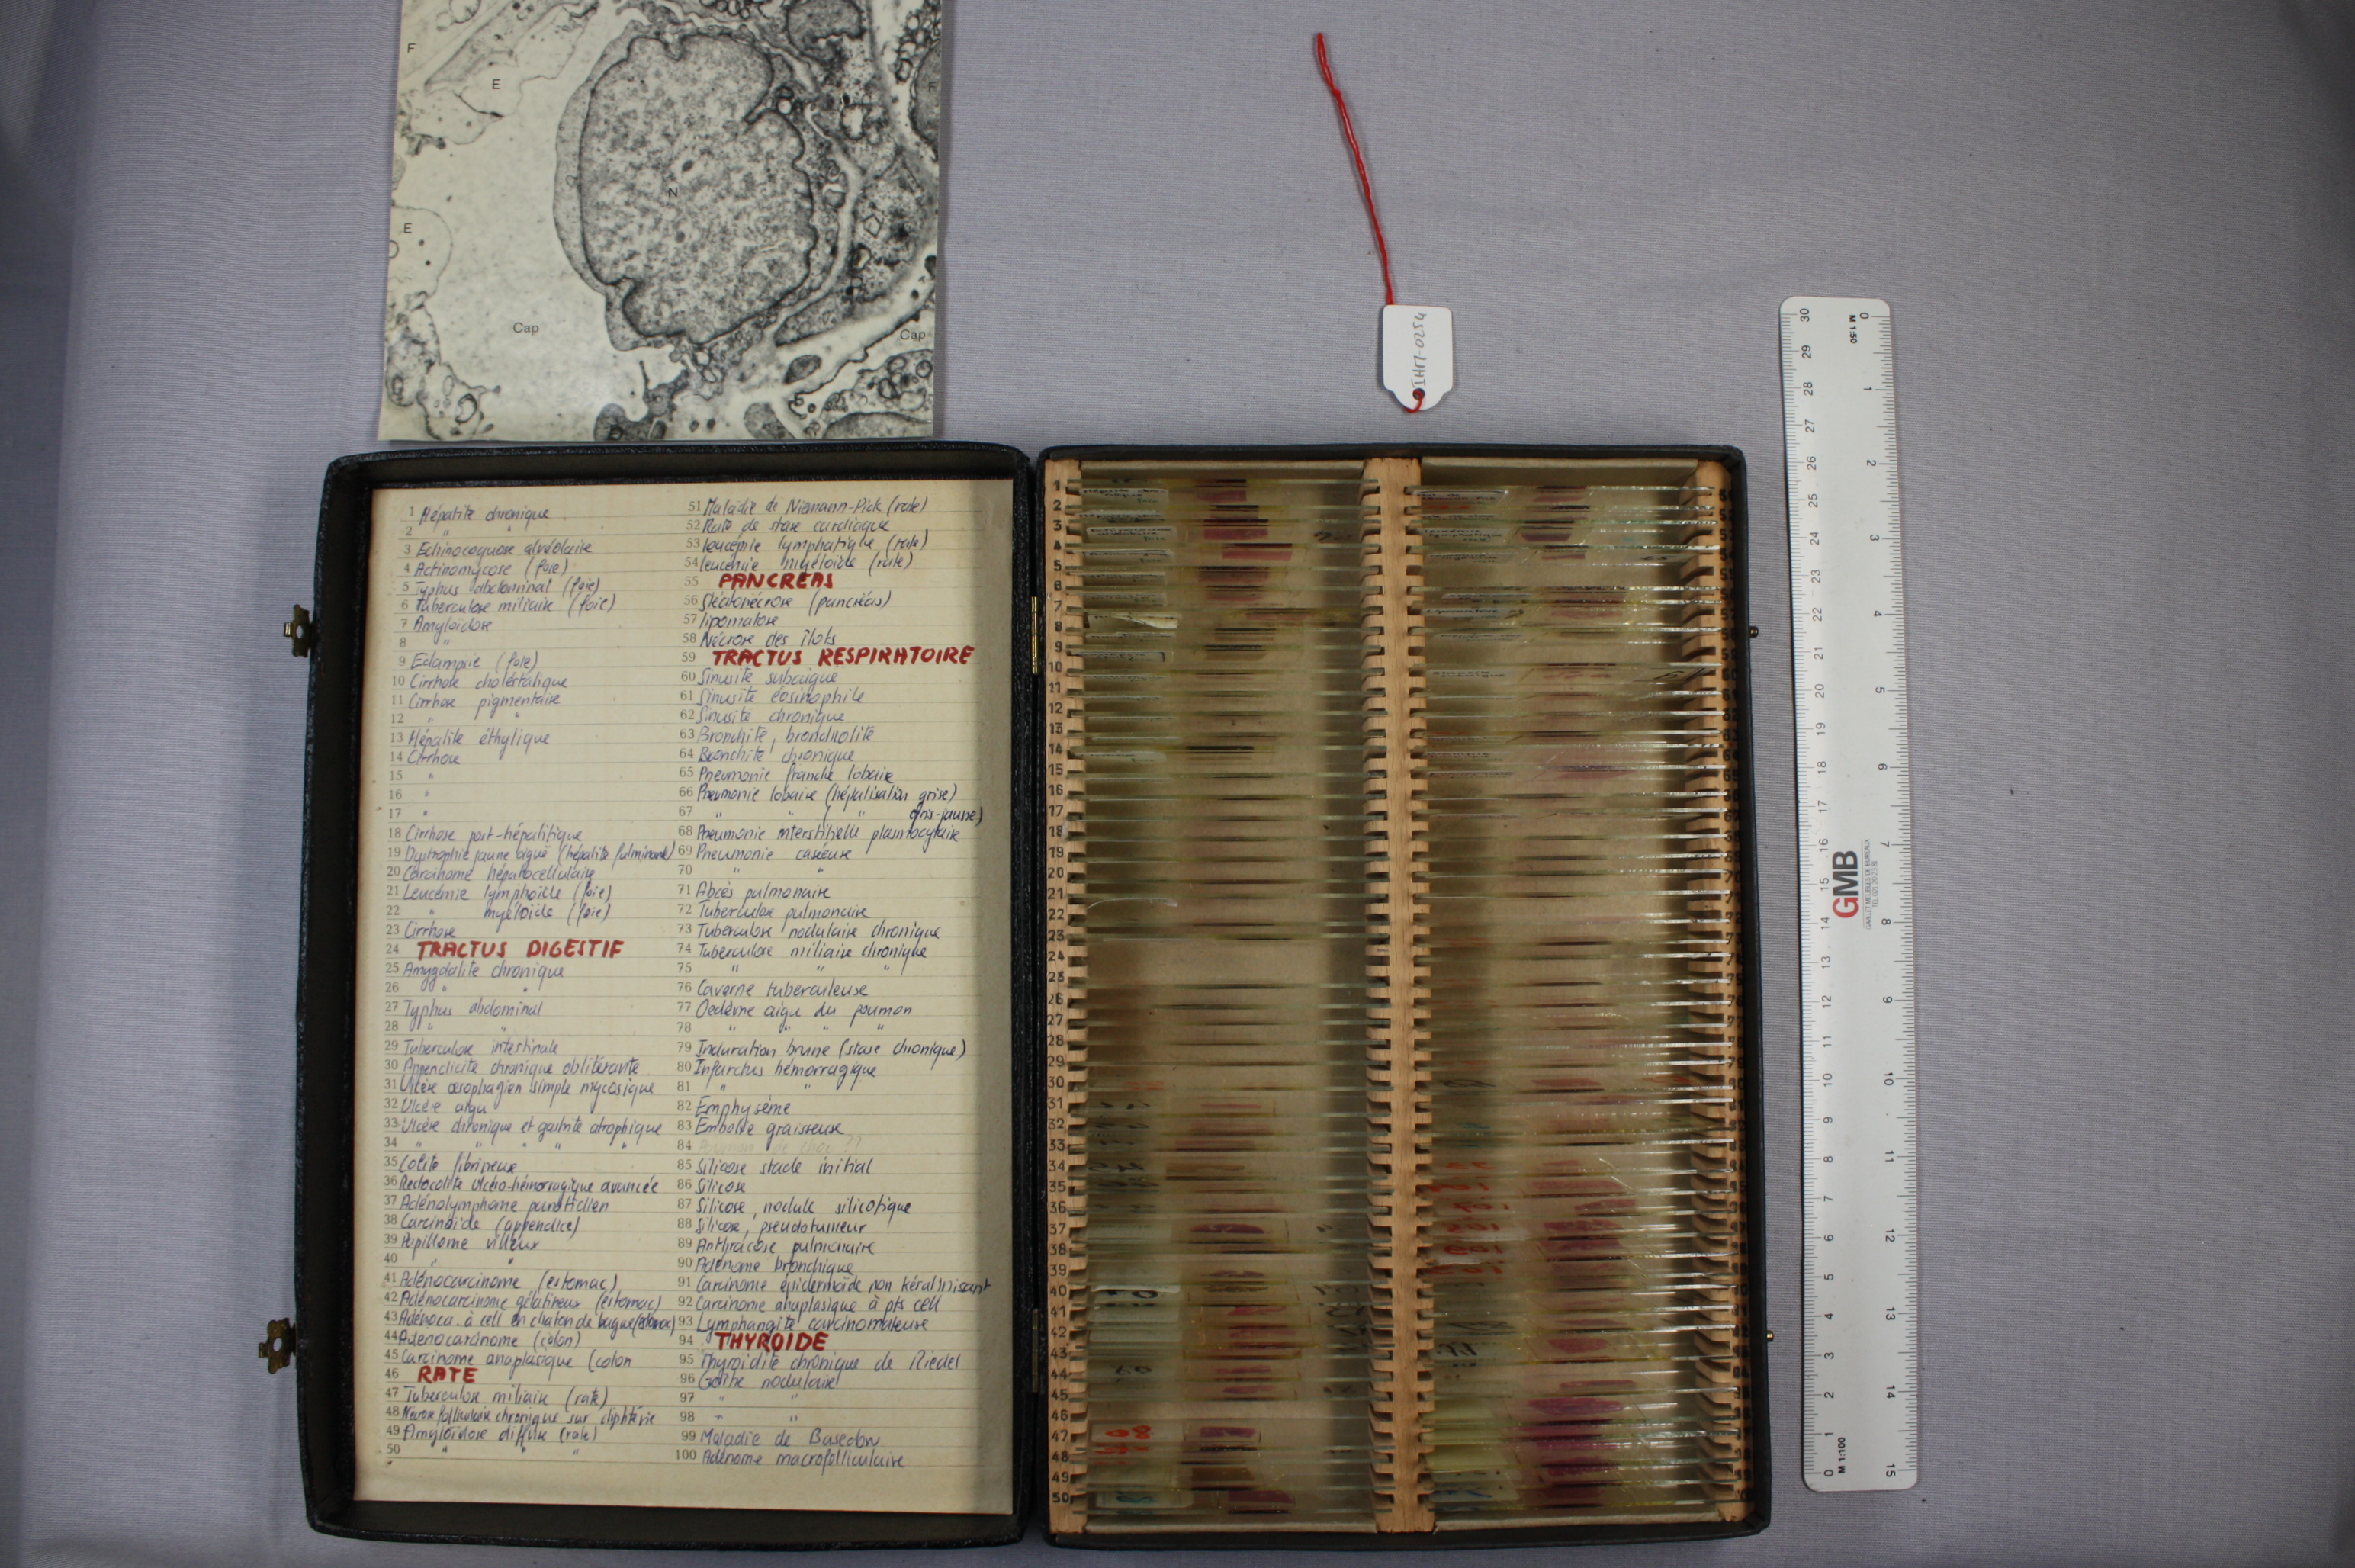 F
E
F
N
E
Cap
Cap
IHM-0254
1 Hépatite chronique
2 "
3 Echinococcose alvéolaire
4 Actinomycose (foie)
5 Typhus abdominal (foie)
6 Tuberculose miliaire (foie)
7 Amyloïdose
8 "
9 Eclampsie (foie)
10 Cirrhose cholestatique
11 Cirrhose pigmentaire
12 " "
13 Hépatite éthylique
14 Cirrhose
15 "
16 "
17 "
18 Cirrhose post-hépatitique
19 Dystrophie jaune aiguë (hépatite fulminante)
20 Carcinome hépatocellulaire
21 Leucémie lymphoïde (foie)
22 " myéloïde (foie)
23 Cirrhose
24 TRACTUS DIGESTIF
25 Amygdalite chronique
26 " "
27 Typhus abdominal
28 " "
29 Tuberculose intestinale
30 Appendicite chronique oblitérante
31 Ulcère œsophagien simple mycosique
32 Ulcère aigu
33 Ulcère chronique et gastrite atrophique
34 " " " " "
35 Colite fibrineuse
36 Rectocolite ulcéro-hémorragique avancée
37 Adénolymphome parotidien
38 Carcinoïde (appendice)
39 Papillome villeux
40 " "
41 Adénocarcinome (estomac)
42 Adénocarcinome gélatineux (estomac)
43 Adénoca. à cell en chaton de bague (estomac)
44 Adenocarcinome (colon)
45 Carcinome anaplasique (colon
46 RATE
47 Tuberculose miliaire (rate)
48 Necrose folliculaire chronique sur diphtérie
49 Amyloïdose diffuse (rate)
50 " " "
51 Maladie de Niemann-Pick (rate)
52 Rate de stase cardiaque
53 leucémie lymphatique (rate)
54 leucémie myéloïde (rate)
55 PANCREAS
56 Stéatonécrose (pancréas)
57 lipomatose
58 Nécrose des îlots
59 TRACTUS RESPIRATOIRE
60 Sinusite subaiguë
61 Sinusite éosinophile
62 Sinusite chronique
63 Bronchite, bronchiolite
64 Bronchite chronique
65 Pneumonie franche lobaire
66 Pneumonie lobaire (hépatisation grise)
67 " " ( " gris-jaune)
68 Pneumonie interstitielle plasmocytaire
69 Pneumonie caséeuse
70 " "
71 Abcès pulmonaire
72 Tuberculose pulmonaire
73 Tuberculose nodulaire chronique
74 Tuberculose miliaire chronique
75 " " "
76 Caverne tuberculeuse
77 Oedème aigu du poumon
78 " " " "
79 Induration brune (stase chronique)
80 Infarctus hémorragique
81 " "
82 Emphysème
83 Embolie graisseuse
84
85 Silicose stade initial
86 Silicose
87 Silicose, nodule silicotique
88 Silicose, pseudotumeur
89 Anthracose pulmonaire
90 Adénome bronchique
91 Carcinome épidermoïde non kératinisant
92 Carcinome anaplasique à pts cell
93 Lymphangite carcinomateuse
94 THYROIDE
95 Thyroïdite chronique de Riedel
96 Goître nodulaire
97 " "
98 " "
99 Maladie de Basedow
100 Adénome macrofolliculaire
1
2
3
4
5
6
7
8
9
10
11
12
13
14
15
16
17
18
19
20
21
22
23
24
25
26
27
28
29
30
31
32
33
34
35
36
37
38
39
40
41
42
43
44
45
46
47
48
49
50
M 1:50
30 29 28 27 26 25 24 23 22 21 20 19 18 17 16 15 14 13 12 11 10 9 8 7 6 5 4 3 2 1 0
0 1 2 3 4 5 6 7 8 9 10 11 12 13 14 15
GMB
M 1:100